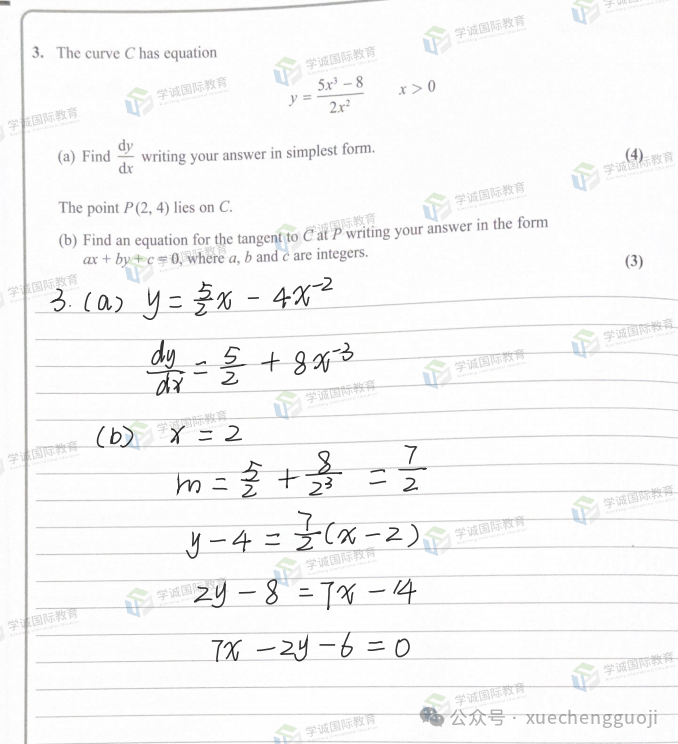 3. The curve C has equation
y = (5x³ − 8)/(2x²)    x > 0
(a) Find dy/dx writing your answer in simplest form.
(4)
The point P(2, 4) lies on C.
(b) Find an equation for the tangent to C at P writing your answer in the form
ax + by + c = 0, where a, b and c are integers.
(3)
3. (a) y = 5/2 x − 4x⁻²
dy/dx = 5/2 + 8x⁻³
(b) x = 2
m = 5/2 + 8/2³ = 7/2
y − 4 = 7/2 (x − 2)
2y − 8 = 7x − 14
7x − 2y − 6 = 0
学诚国际教育
公众号 · xuechengguoji